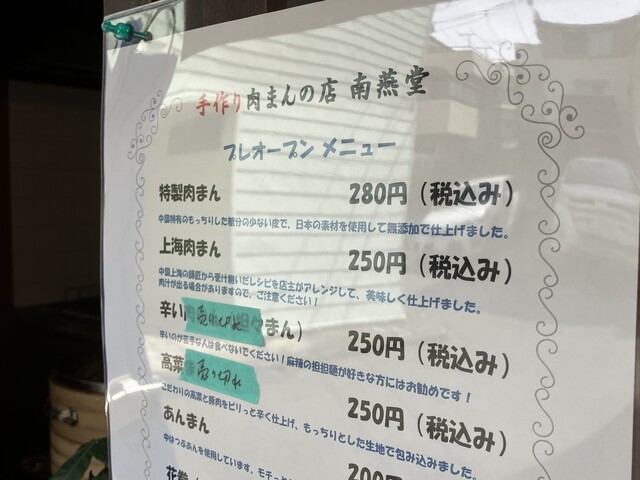 手作り肉まんの店 南燕堂
プレオープン メニュー
特製肉まん 280円（税込み）
中国特有のもっちりした糖分の少ない皮で、日本の素材を使用して無添加で仕上げました。
上海肉まん 250円（税込み）
中国上海の師匠から受け継いだレシピを店主がアレンジして、美味しく仕上げました。
肉汁が出る場合がありますので、ご注意ください！
辛い 売り切れ 担々まん） 250円（税込み）
辛いのが苦手な人は食べないでください！麻辣の担担麺が好きな方にはお勧めです！
高菜 売り切れ 250円（税込み）
こだわりの高菜と豚肉をピリっと辛く仕上げ、もっちりとした生地で包み込みました。
あんまん 200円
中はつぶあんを使用しています。モチっと
花巻